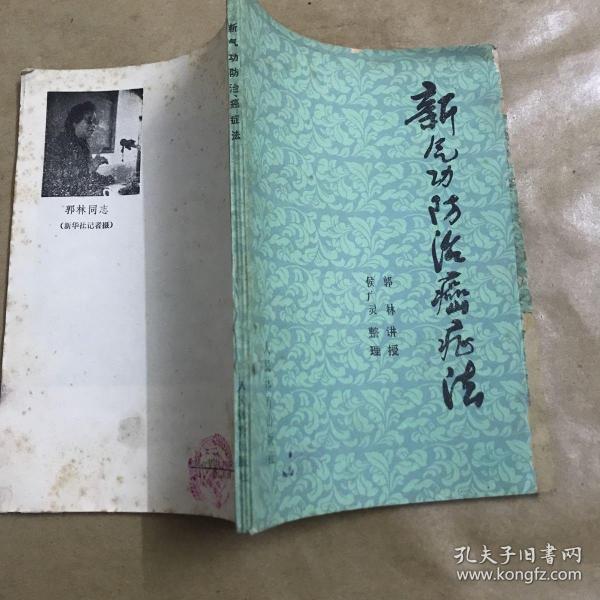 新气功防治癌症法
郭林讲授
侯广灵整理
人民体育出版社
新气功防治癌症法
郭林同志
(新华社记者摄)
孔夫子旧书网
www.kongfz.com